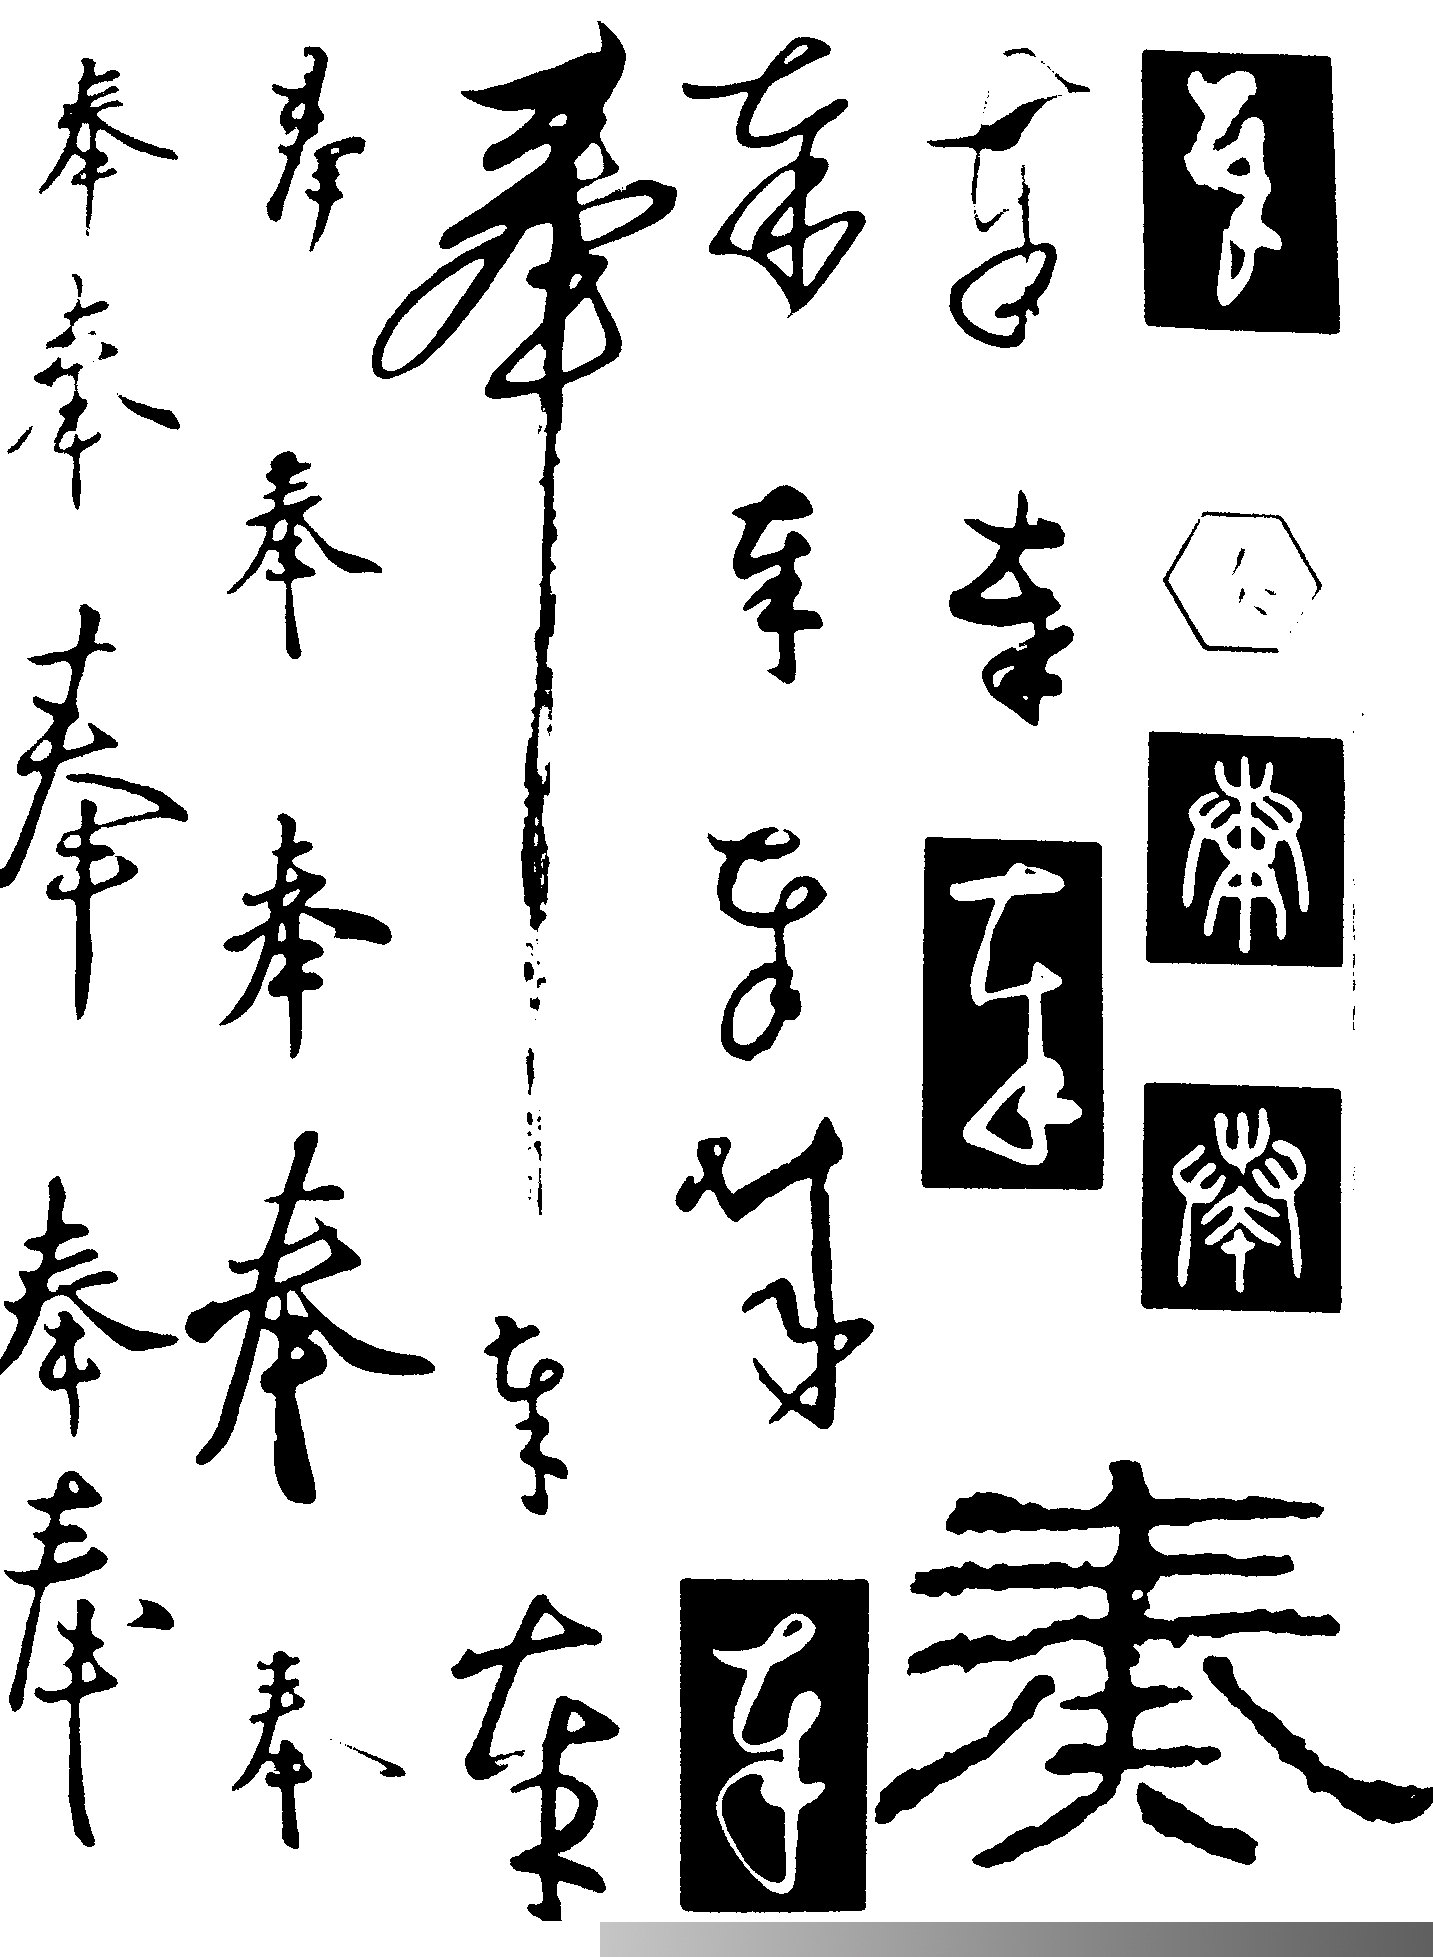 奉奉奏
奉奉奉
奉奉奉奉奉
奉奉奉
奉奉奉奉奉
奉奉奉奉奉